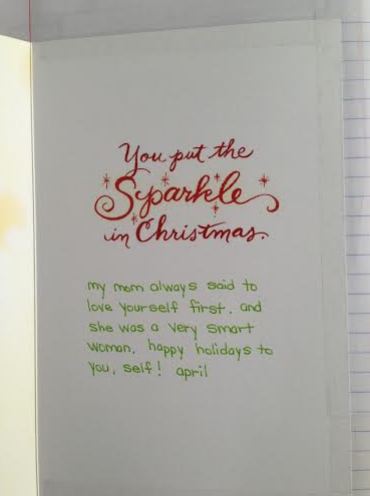 You put the
Sparkle
in Christmas.
my mom always said to
love yourself first. and
she was a very smart
woman. happy holidays to
you, self! april